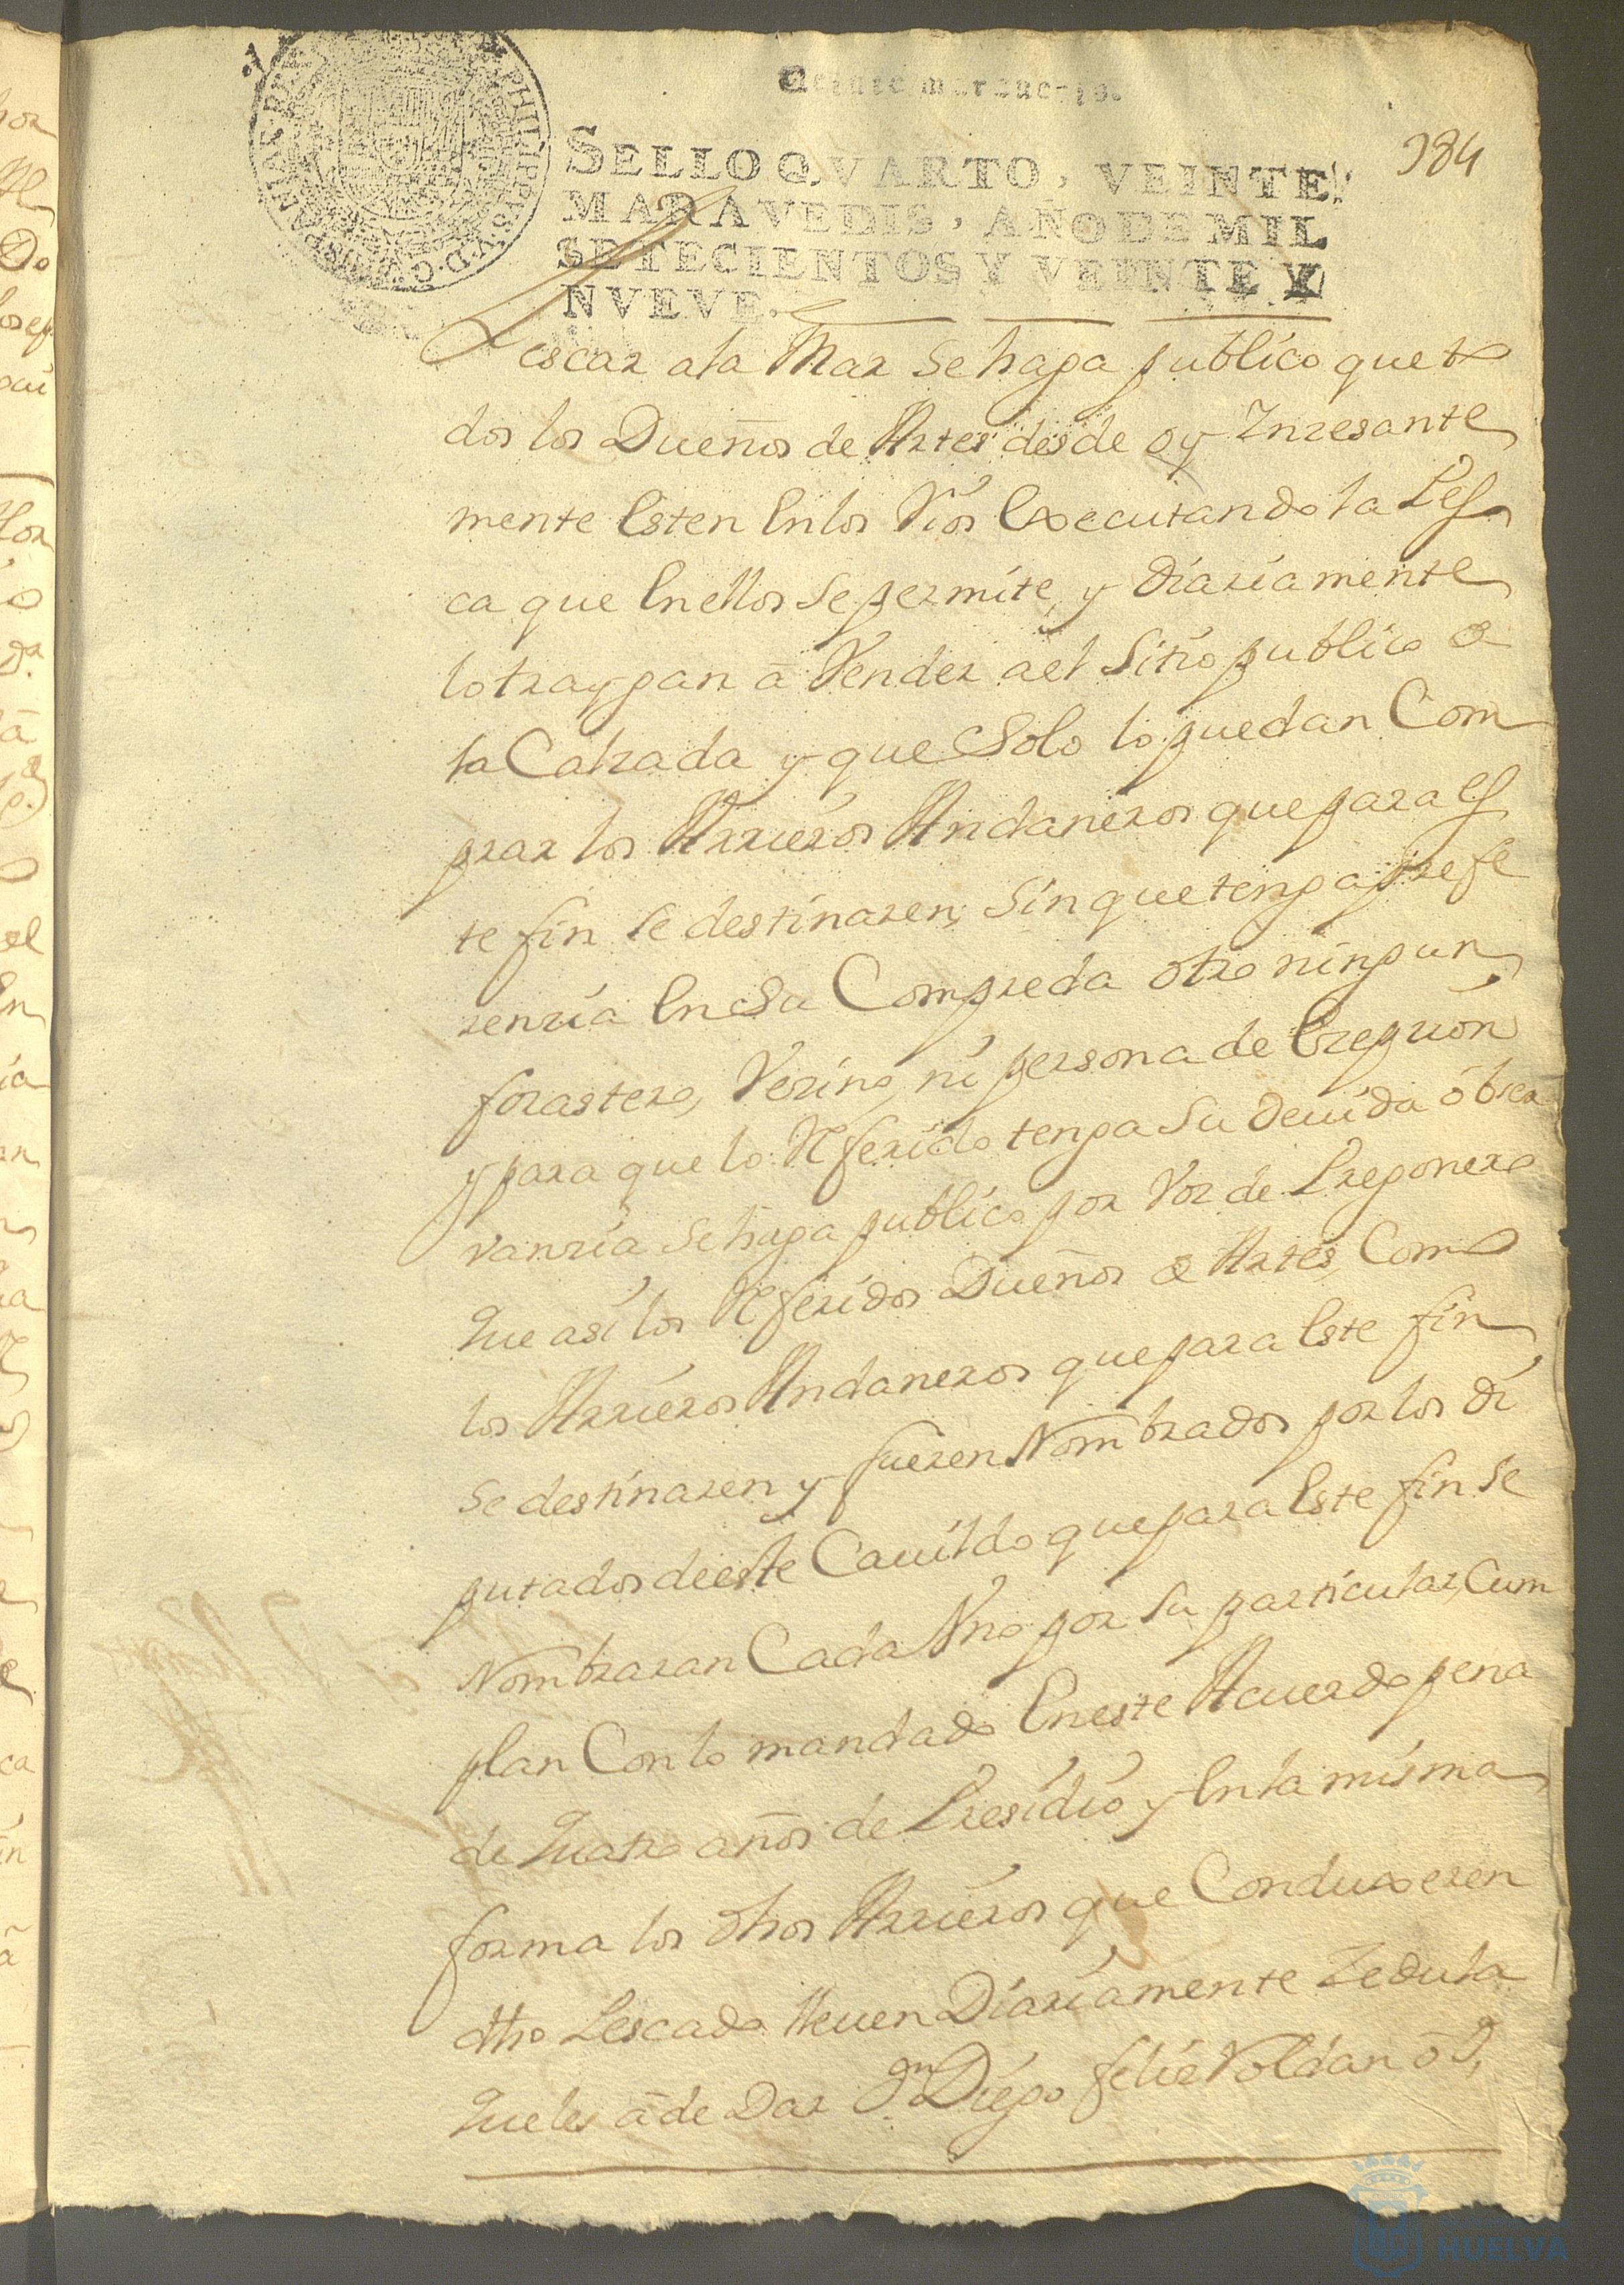 Veinte marauedis.
384
SELLO QVARTO, VEINTE
MARAVEDIS, AÑO DE MIL
SETECIENTOS Y VEINTE Y
NVEVE.
Pescar ala Mar se haga publico que to
dos los Dueños de Artes desde oy Inzesante
mente Esten En los Rios Executando la Pes
ca que En ellos se permite, y diariamente
lo traygan â Vender a el Sitio publico de
la Calzada y que Solo lo puedan Com
prar los Arrieros Andaneros que para es
te fin se destinaren, sin que tenga prefe
renzia En Su Compreda otro ningun
forastero, Vezino, ni persona de Exepzion
y para que lo Referido tenga Su deuida obser
vanzia se haga publico por Voz de Pregonero
que asi los Referidos Dueños de Artes, Como
los Arrieros Andaneros que para Este fin
se destinaren y fueren Nombrados por los di
putados de este Cauildo que para Este fin se
Nombraran Cada Vno por su particular, Cum
plan Con lo mandado En este Acuerdo pena
de quatro años de Presidio y En la misma
forma los dhos Arrieros que Conduxeren
dho Pescado lleuen Diariamente Zedula
que les â de Dar Dn Diego felix Roldan ô D.
HUELVA